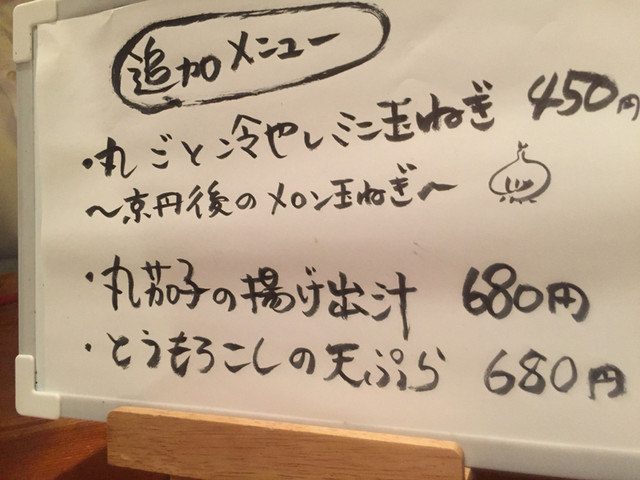 追加メニュー
・丸ごと冷やしミニ玉ねぎ 450円
〜京丹後のメロン玉ねぎ〜
・丸茄子の揚げ出汁 680円
・とうもろこしの天ぷら 680円